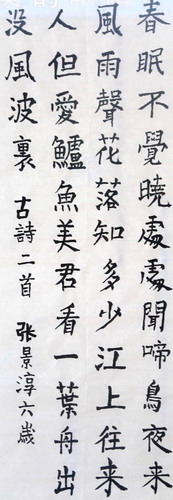 春眠不覺曉處處聞啼鳥夜来
風雨聲花落知多少江上往来
人但愛鱸魚美君看一葉舟出
没風波裏 古詩二首 张景淳六歲